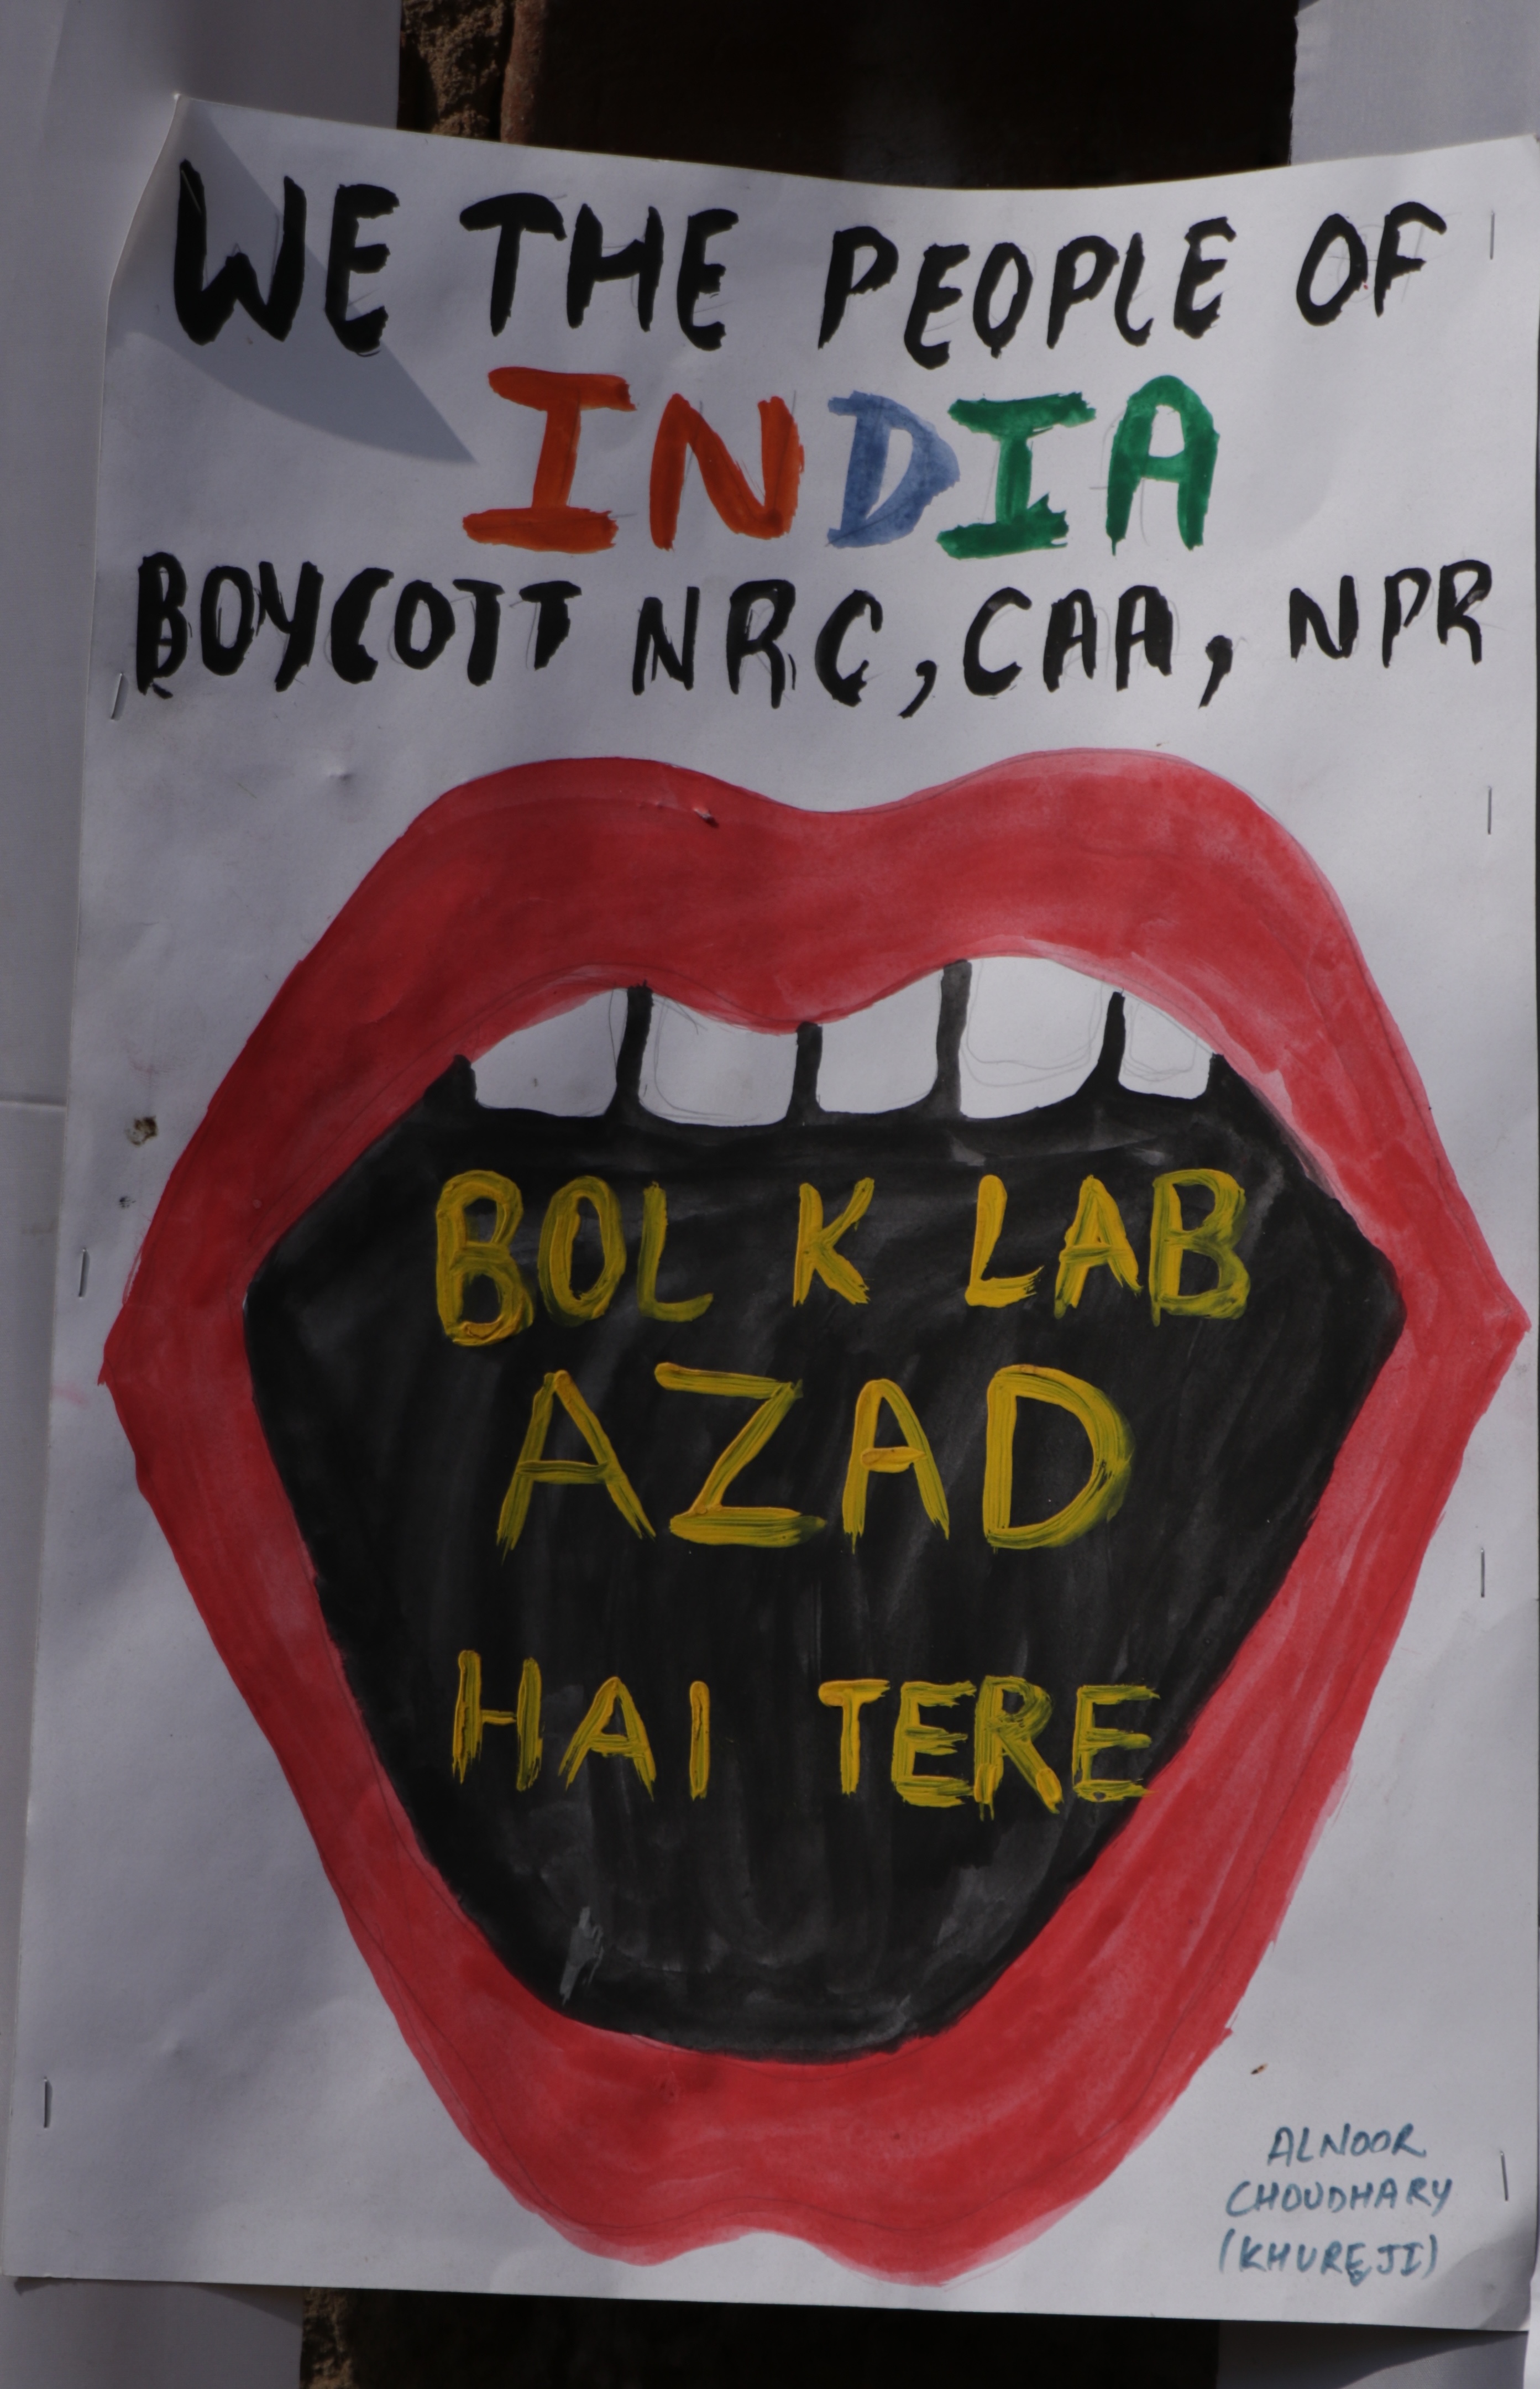 WE THE PEOPLE OF
INDIA
BOYCOTT NRC, CAA, NPR
BOL K LAB
AZAD
HAI TERE
ALNOOR
CHOUDHARY
(KHUREJI)